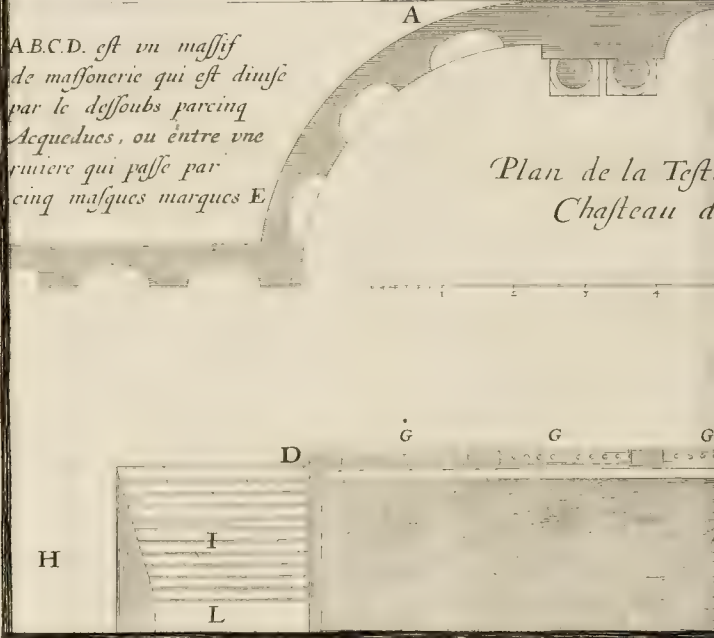 A
A.B.C.D. est vn massif
de massonerie qui est diuise
par le dessoubs parcinq
Acqueducs, ou entre vne
riuiere qui passe par
cinq masques marques E
Plan de la Test
Chasteau d
1 2 3 4
G G G
D
I
H
L